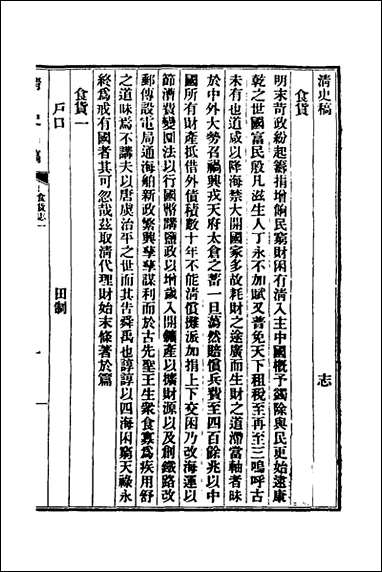 清史稿 志
食貨
明末苛政紛起籌捐增餉民窮財困有清入主中國概予蠲除與民更始逮康
乾之世國富民殷凡滋生人丁永不加賦又普免天下租稅至再至三嗚呼古
未有也道咸以降海禁大開國家多故耗財之途廣而生財之道滯當軸者昧
於中外大勢召禍興戎天府太倉之蓄一旦蕩然賠償兵費至四百餘兆以中
國所有財產抵借外債積數十年不能清償攤派加捐上下交困乃改海運以
節漕費變圜法以行國幣講鹽政以增歲入開鑛產以擴財源以及創鐵路改
郵傳設電局通海舶新政繁興孳孳謀利而於古先聖王生眾食寡為疾用舒
之道昧焉不講夫以唐虞治平之世而其告舜禹也諄諄以四海困窮天祿永
終為戒有國者其可忽哉茲取清代理財始末條著於篇
食貨一
戶口 田制
清史稿 食貨志一 一